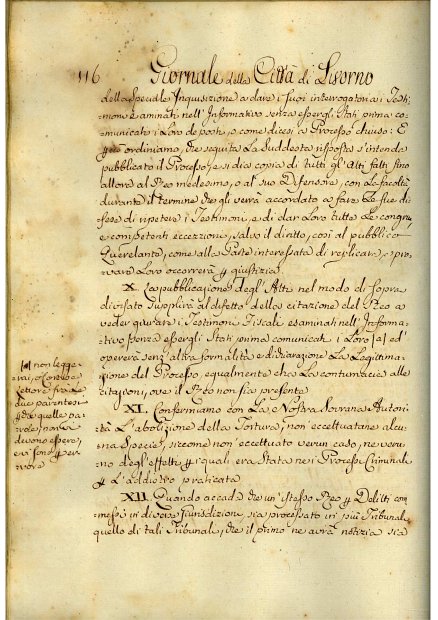 116 Giornale della Città di Livorno
della Speciale Inquisizione a dare i suoi interrogatori ai Testi-
moni esaminati nell' Informativo senza essergli stati prima co-
municati i Loro deposti, o come dicesi a Processo chiuso: E
ordiniamo, che seguita La suddetta risposta s'intenda
pubblicato il Processo, e si dia copia di tutti gl' Atti fatti fino
allora al Reo medesimo, o al suo Difensore, con La facoltà
durante il termine che gli verrà accordato a fare Le sue di-
fese di ripetere i Testimoni, e di dar Loro tutte Le congrue,
e competenti eccezzioni, salvo il diritto, così al pubblico
Querelante, come alla Parte interessata di replicare, e pro-
vare Loro occorrerà giustizia.
X. La pubblicazione degl' Atti nel modo di sopra
divisato supplirà al difetto della citazione del Reo a
veder giurare i Testimoni Fiscali esaminati nell' Informa-
tivo senza essergli stati prima comunicati i Loro [a] ed
opererà senz' altra formalità e dichiarazione La Legittima-
zione del Processo, egualmente che La contumacia alle
citazioni, ove il Reo non sia presente.
[a] non legge-
rai, o Correse
Lettore fra Le
due parentesi
quelle pa-
role, non vi
devono essere,
vi sono er-
rore
XI. Confermiamo con La Nostra Sovrana Autori-
tà L'abolizione della Tortura, non eccettuatane alcu-
na Specie, siccome non eccettuato verun caso, ne veru-
no degl' effetti i quali era stata nei Processi Criminali
L'addietro praticata
XII. Quando accada che un' istesso Reo Delitti com-
messi in diverse Giurisdizioni, sia processato in più Tribunali,
quello di tali Tribunali, che il primo ne avrà notizia sia